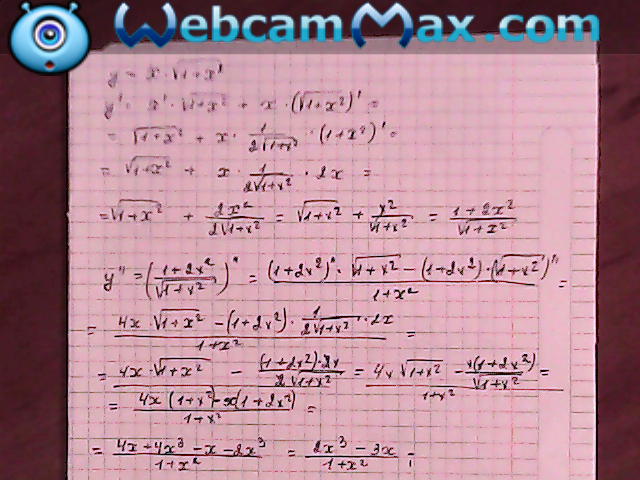 WebcamMax.com
y = x · √1+x²
y' = x' · √1+x² + x · (√1+x²)' =
= √1+x² + x · 1/(2√1+x²) · (1+x²)' =
= √1+x² + x · 1/(2√1+x²) · 2x =
= √1+x² + 2x²/(2√1+x²) = √1+x² + x²/√1+x² = (1+2x²)/√1+x²
y'' = ((1+2x²)/√1+x²)'' = ((1+2x²)'' · √1+x² − (1+2x²) · (√1+x²)'')/(1+x²) =
= (4x · √1+x² − (1+2x²) · 1/(2√1+x²) · 2x)/(1+x²) =
= (4x · √1+x² − (1+2x²) · 2x/(2√1+x²) = (4x √1+x² − x(1+2x²)/√1+x²)/(1+x²) =
= (4x (1+x²) − x(1+2x²))/(1+x²) =
= (4x + 4x³ − x − 2x³)/(1+x²) = (2x³ − 3x)/(1+x²) ;